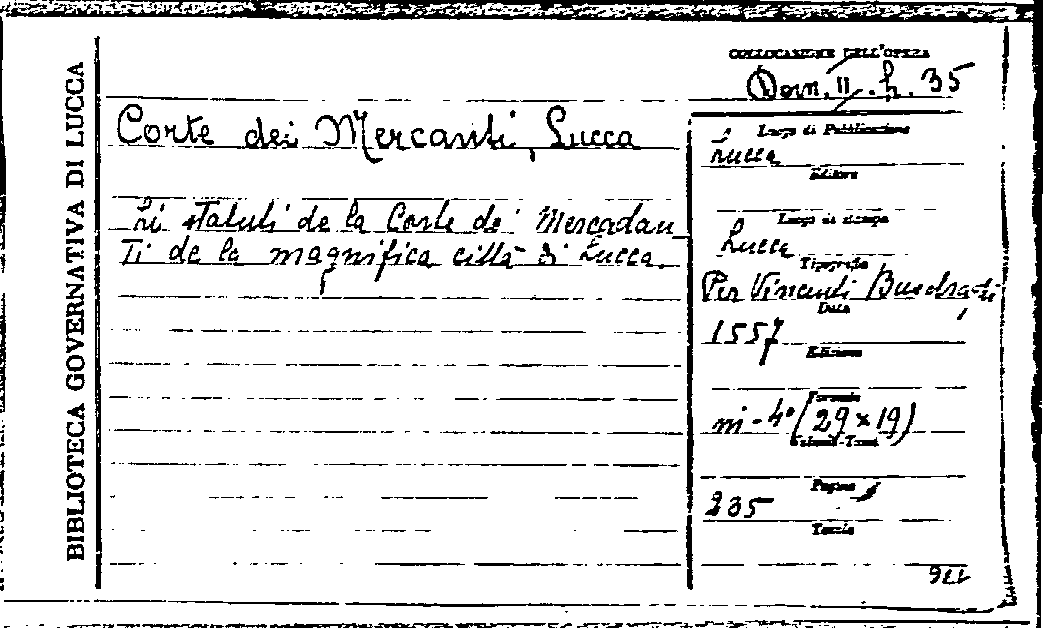 BIBLIOTECA GOVERNATIVA DI LUCCA
COLLOCAZIONE DELL'OPERA
Dorn. II. h. 35
Corte dei Mercanti, Lucca
Li statuti de la Corte de' Mercadan
ti de la magnifica città di Lucca.
Luogo di Pubblicazione
Lucca
Editore
Luogo di stampa
Lucca
Tipografia
Per Vincenti Busdraghi
Data
1557
Edizione
Formato
in-4° (29 x 19)
Volumi-Tomi
Pagine
235
Tavole